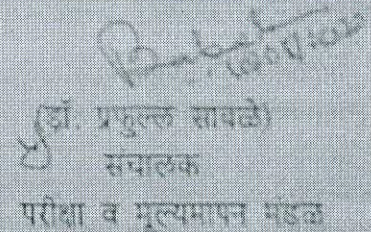 (डॉ. प्रफुल्ल सावळे)
संचालक
परीक्षा व मूल्यमापन मंडळ